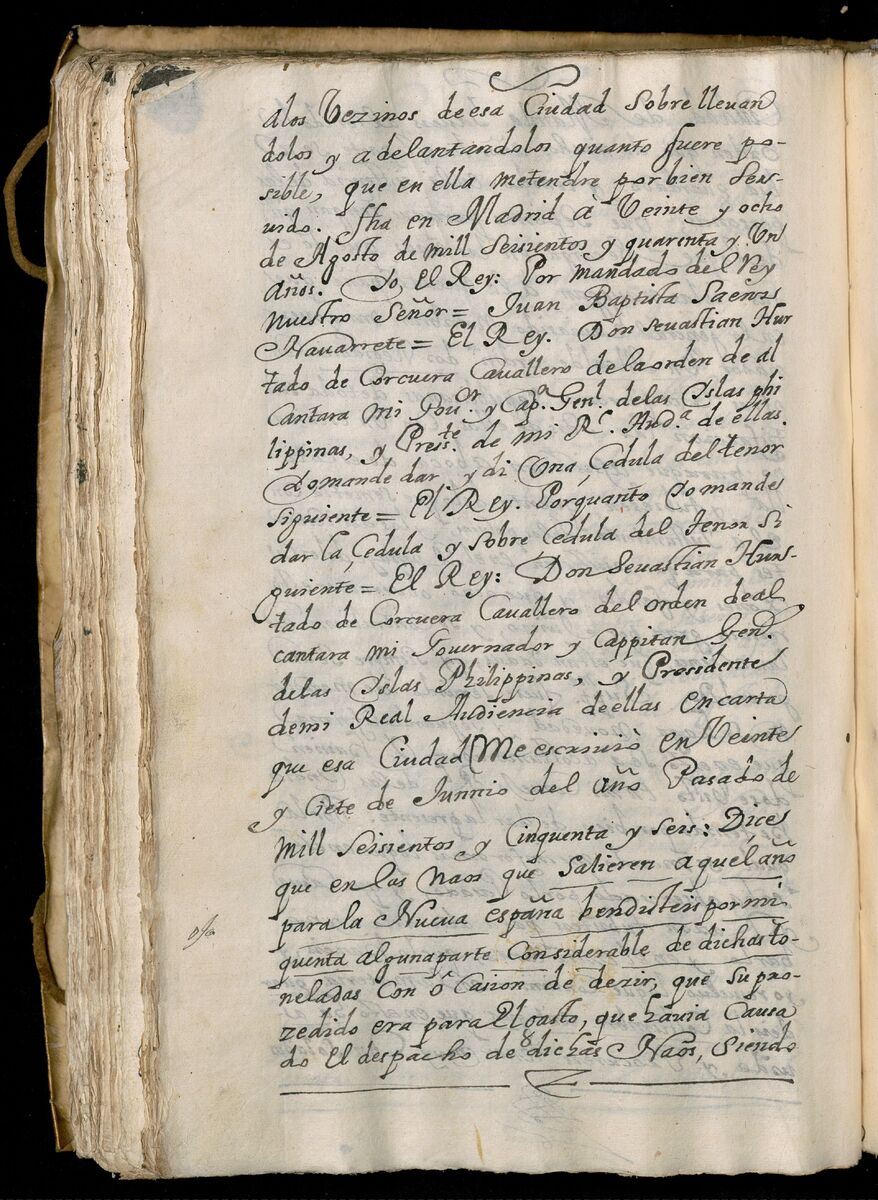 alos Vezinos de esa Ciudad Sobrelleuan
dolos y adelantandolos quanto fuere po-
sible, que en ella metendre por bien Ser-
uido. fha en Madrid à Veinte y ocho
de Agosto de mill Seisientos y quarenta y Un
Años. Yo, El Rey: Por mandado del Rey
nuestro Señor = Juan Baptista Saenz
Nauarrete = El Rey. Don Seuastian Hur
tado de Corcuera Cauallero de la orden de al
cantara mi Gou.or y Cap.n Gen.l de las Islas phi
lippinas, y Press.te de mi R.l Aud.a de ellas.
Yo mande dar y di Una Cedula del tenor
siguiente = El Rey. Porquanto Yo mande
dar la Cedula y Sobre Cedula del tenor Si
guiente = El Rey: Don Seuastian Hur-
tado de Corcuera Cauallero del orden de al
cantara mi Gouernador y Cappitan Gen.l
de las Islas Philippinas, y Presidente
de mi Real Audiencia de ellas en carta
que esa Ciudad Me escriuiò en Veinte
y Ciete de Junnio del año Pasado de
mill Seisientos y Cinquenta y seis: Dice
que en las Naos que Salieren aquel año
para la Nueua españa bendisteis por mi
quenta alguna parte Considerable de dichas to-
neladas Con ôCasion de dezir, que Su pro-
zedido era para El gasto, que hauia Causa
do El despacho de dichas Naos, Siendo